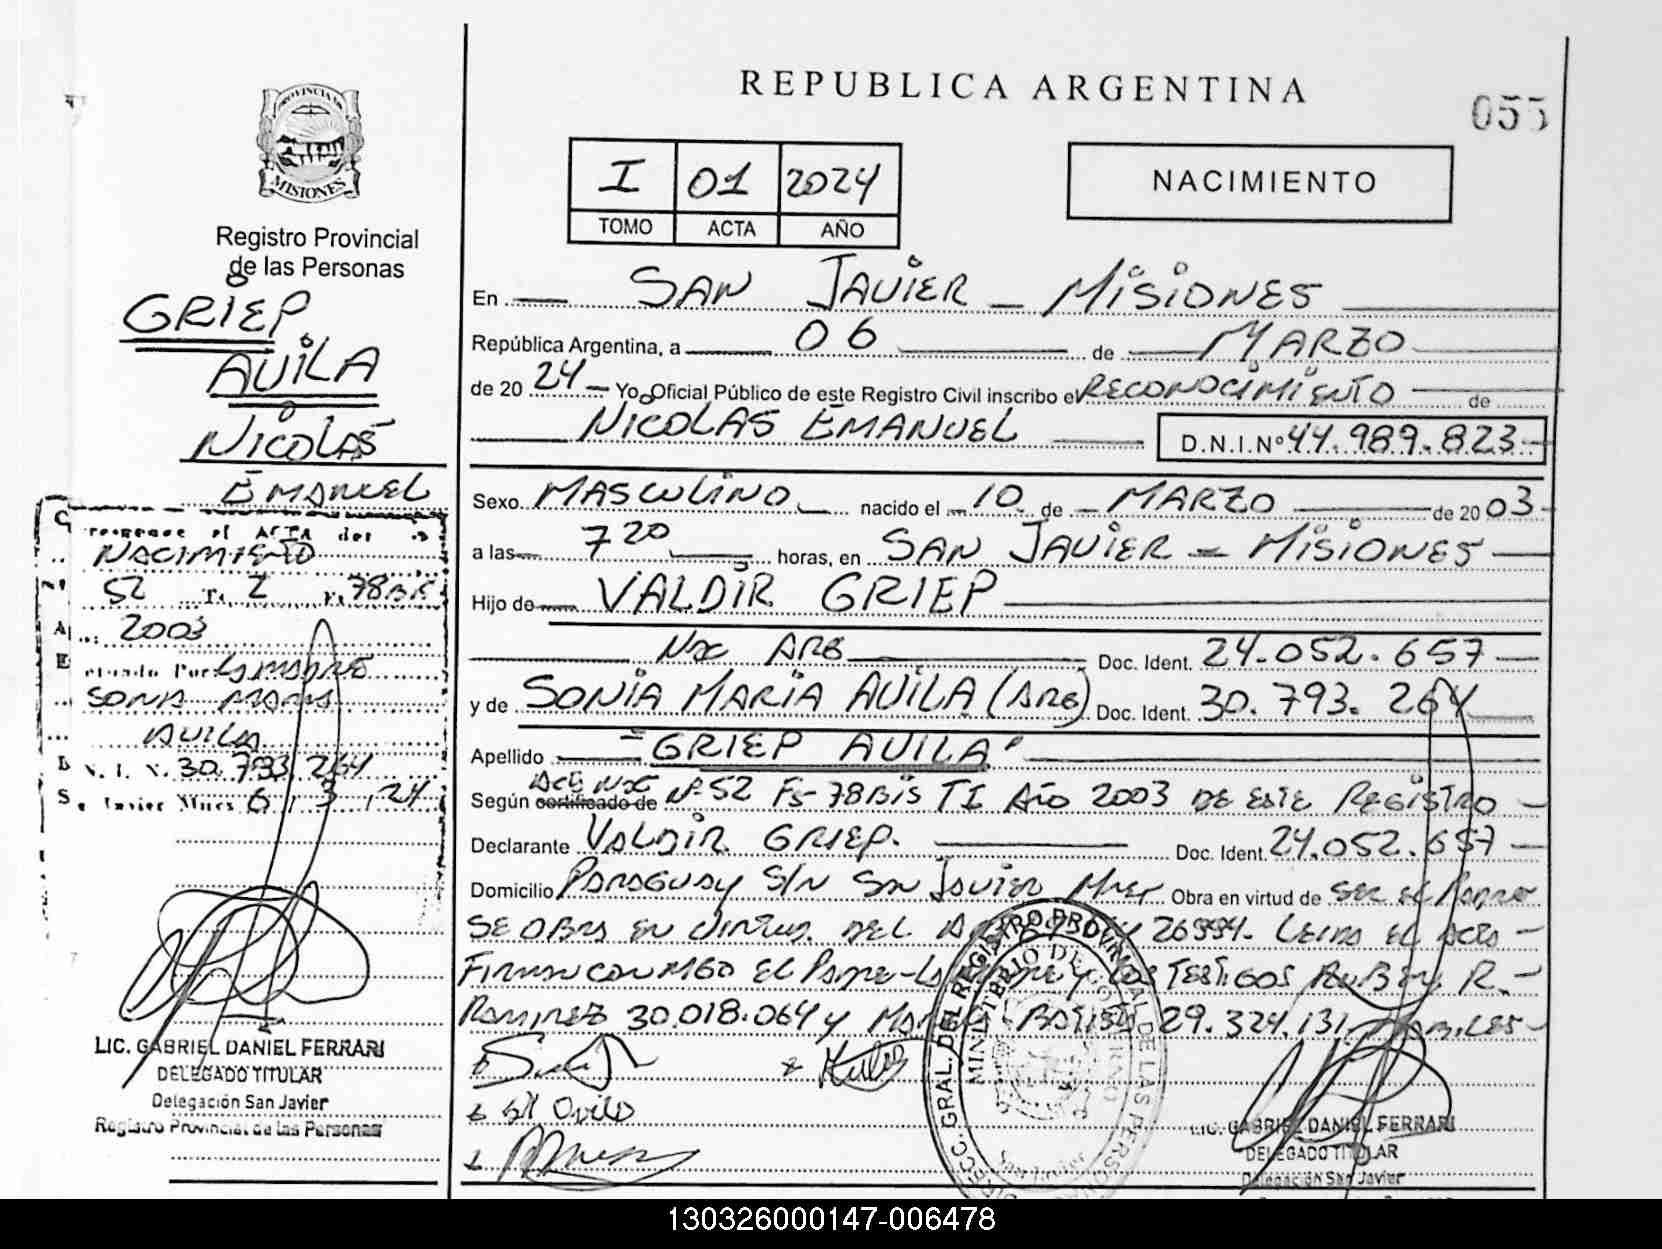 REPUBLICA ARGENTINA
055
PROVINCIA DE
MISIONES
Registro Provincial
de las Personas
GRIEP
AVILA
NICOLAS
EMANUEL
I 01 2024
TOMO ACTA AÑO
NACIMIENTO
En SAN JAVIER - MISIONES
República Argentina, a 06 de MARZO
de 20 24 Yo, Oficial Público de este Registro Civil inscribo el RECONOCIMIENTO de
NICOLAS EMANUEL D.N.I.Nº 44.989.823
Sexo MASCULINO nacido el 10 de MARZO de 20 03
a las 7 20 horas, en SAN JAVIER - MISIONES
Hijo de VALDIR GRIEP
Nac ARG Doc. Ident. 24.052.657
y de SONIA MARIA AVILA (ARG) Doc. Ident. 30.793.264
Apellido "GRIEP AVILA"
Según certificado de Acta Nac Nº 52 Fs 78 Bis T I Año 2003 DE ESTE REGISTRO
Declarante VALDIR GRIEP. Doc. Ident. 24.052.657
Domicilio PARAGUAY S/N SAN JAVIER Mnes Obra en virtud de SER EL PADRE
SE OBRA EN VIRTUD DEL 26994. LEIDA EL ACTA
FIRMAN CONMIGO EL PADRE - LA Y LOS TESTIGOS RUBEN R.
RAMIREZ 30.018.064 y 29.324.131
ACTA del
NACIMIENTO
52 T. 2 F. 78 BIS
2003
Por LA MADRE
SONIA MARIA
AVILA
N. I. N. 30.793.264
Javier Mnes 6 / 3 / 24
LIC. GABRIEL DANIEL FERRARI
DELEGADO TITULAR
Delegación San Javier
Registro Provincial de las Personas
DIRECC. GRAL. DEL REGISTRO PROVINCIAL DE LAS PERSONAS
MINISTERIO DE GOBIERNO
San Javier
LIC. GABRIEL DANIEL FERRARI
DELEGADO TITULAR
Delegación San Javier
130326000147-006478